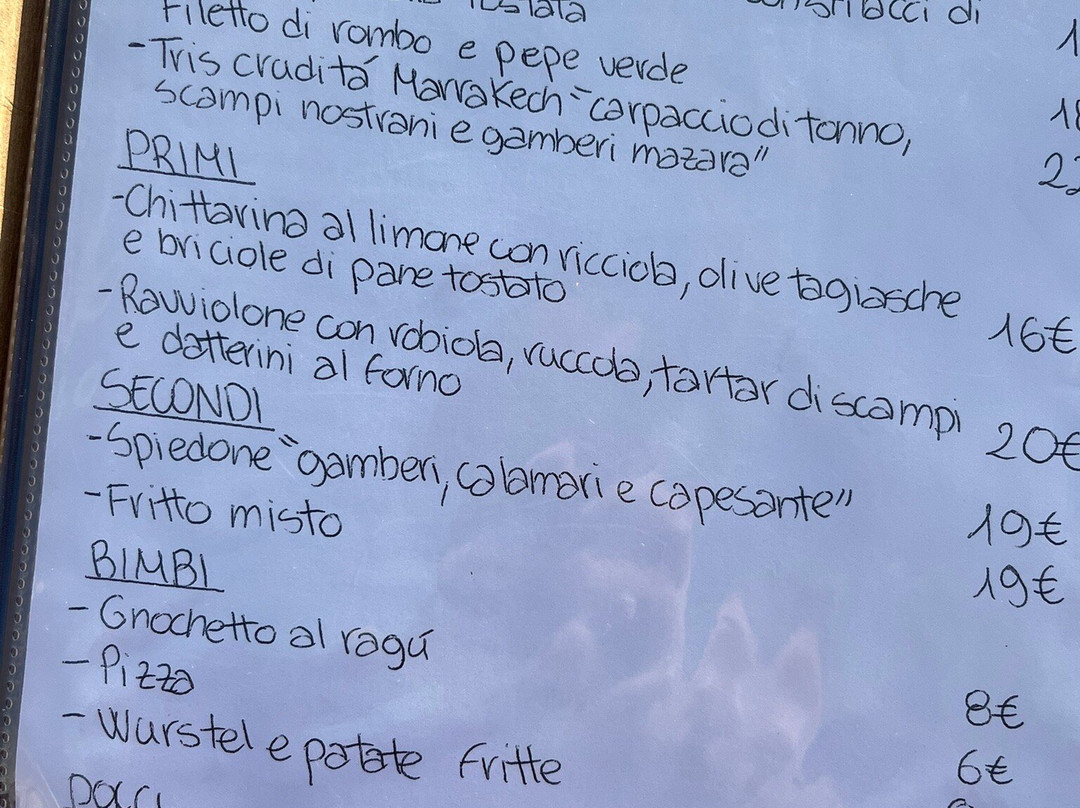 Filetto di rombo e pepe verde
-Tris crudità Marrakech "carpaccio di tonno,
scampi nostrani e gamberi mazara"
PRIMI
-Chittarina al limone con ricciola, olive tagiasche
e briciole di pane tostato 16€
-Ravviolone con robiola, ruccola, tartar di scampi
e datterini al forno 20€
SECONDI
-Spiedone "gamberi, calamari e capesante" 19€
-Fritto misto 19€
BIMBI
-Gnochetto al ragù 8€
-Pizza 6€
-Wurstel e patate fritte